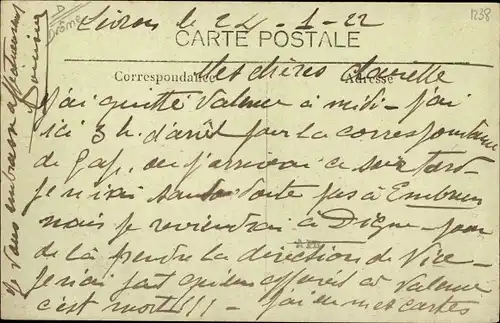 Livron le 24-1-22
1238
D
Drôme
CARTE POSTALE
Correspondance
Adresse
Mes chères
J'ai quitté Valence à midi - j'ai
ici 3 h. d'arrêt pour la correspondance
de Gap, où j'arriverai ce soir tard -
je n'irai sans doute pas à Embrun
mais je reviendrai à Digne - pour
de là prendre la direction de Nice -
je n'ai fait qu'une affaire à Valence
c'est mort!!! - J'ai eu mes cartes
Je vous embrasse affectueusement